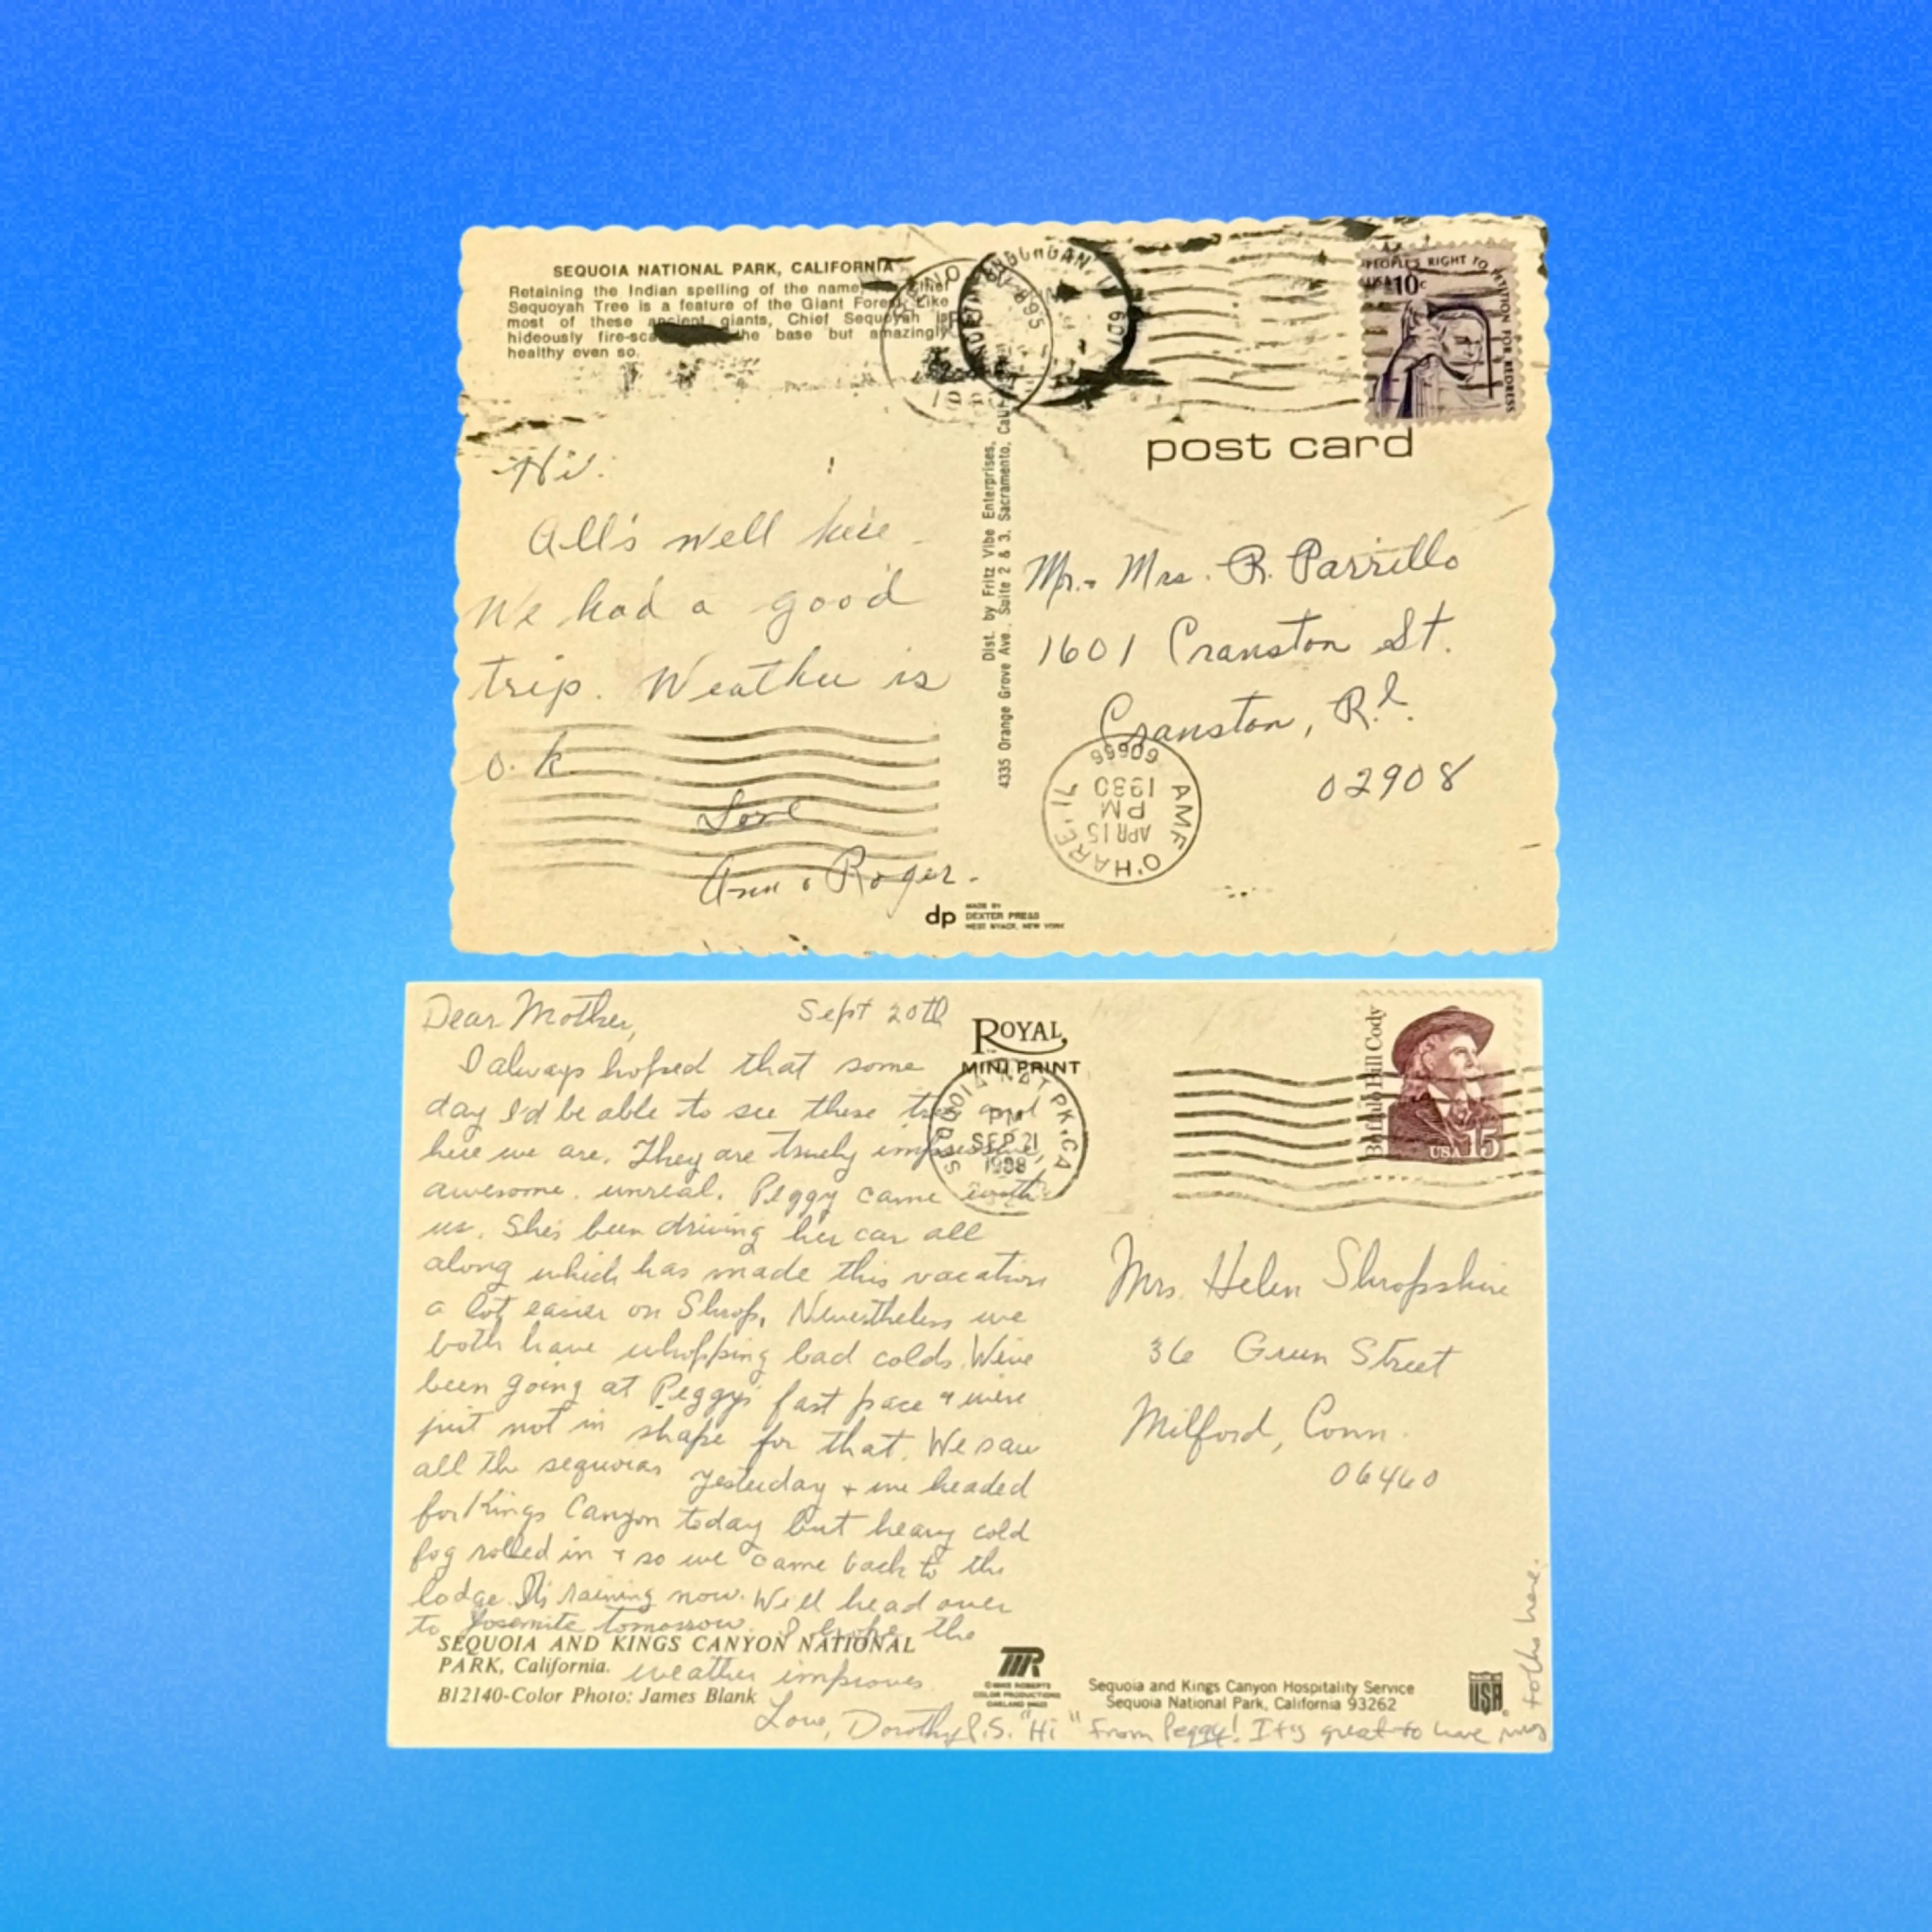 SEQUOIA NATIONAL PARK, CALIFORNIA
Retaining the Indian spelling of the name,
Sequoyah Tree is a feature of the Giant Forest. Like
most of these ancient giants, Chief Sequoyah is
hideously the base but amazingly
healthy even so.
PEOPLE'S RIGHT TO PETITION FOR REDRESS
USA 10c
post card
Hi.
All's well here -
We had a good
trip. Weather is
o.k.
Love
Ann & Roger.
Dist. by Fritz Vibe Enterprises,
4335 Orange Grove Ave., Suite 2 & 3, Sacramento, Calif.
Mr. & Mrs. R. Parrillo
1601 Cranston St.
Cranston, R.I.
02908
AMF O'HARE, IL
60666
APR 15
PM
1980
dp
MADE BY
DEXTER PRESS
WEST NYACK, NEW YORK
Dear Mother, Sept 20th
I always hoped that some
day I'd be able to see these trees and
here we are. They are truely impressive,
awesome, unreal. Peggy came with
us. She's been driving her car all
along which has made this vacation
a lot easier on Shrop. Nevertheless we
both have whopping bad colds. We've
been going at Peggy's fast pace & we're
just not in shape for that. We saw
all the sequoias yesterday & we headed
for Kings Canyon today but heavy cold
fog rolled in & so we came back to the
lodge. It's raining now. We'll head over
to Yosemite tomorrow. I hope the
weather improves
Love, Dorothy P.S. "Hi" from Peggy! It's great to have my
folks here.
ROYAL
MINI PRINT
SEQUOIA NAT PK, CA
PM
SEP 21
1988
Buffalo Bill Cody
USA 15
Mrs. Helen Shropshire
36 Green Street
Milford, Conn.
06460
SEQUOIA AND KINGS CANYON NATIONAL
PARK, California.
B12140-Color Photo: James Blank
©MIKE ROBERTS
COLOR PRODUCTIONS
OAKLAND 94623
Sequoia and Kings Canyon Hospitality Service
Sequoia National Park, California 93262
MADE IN
USA